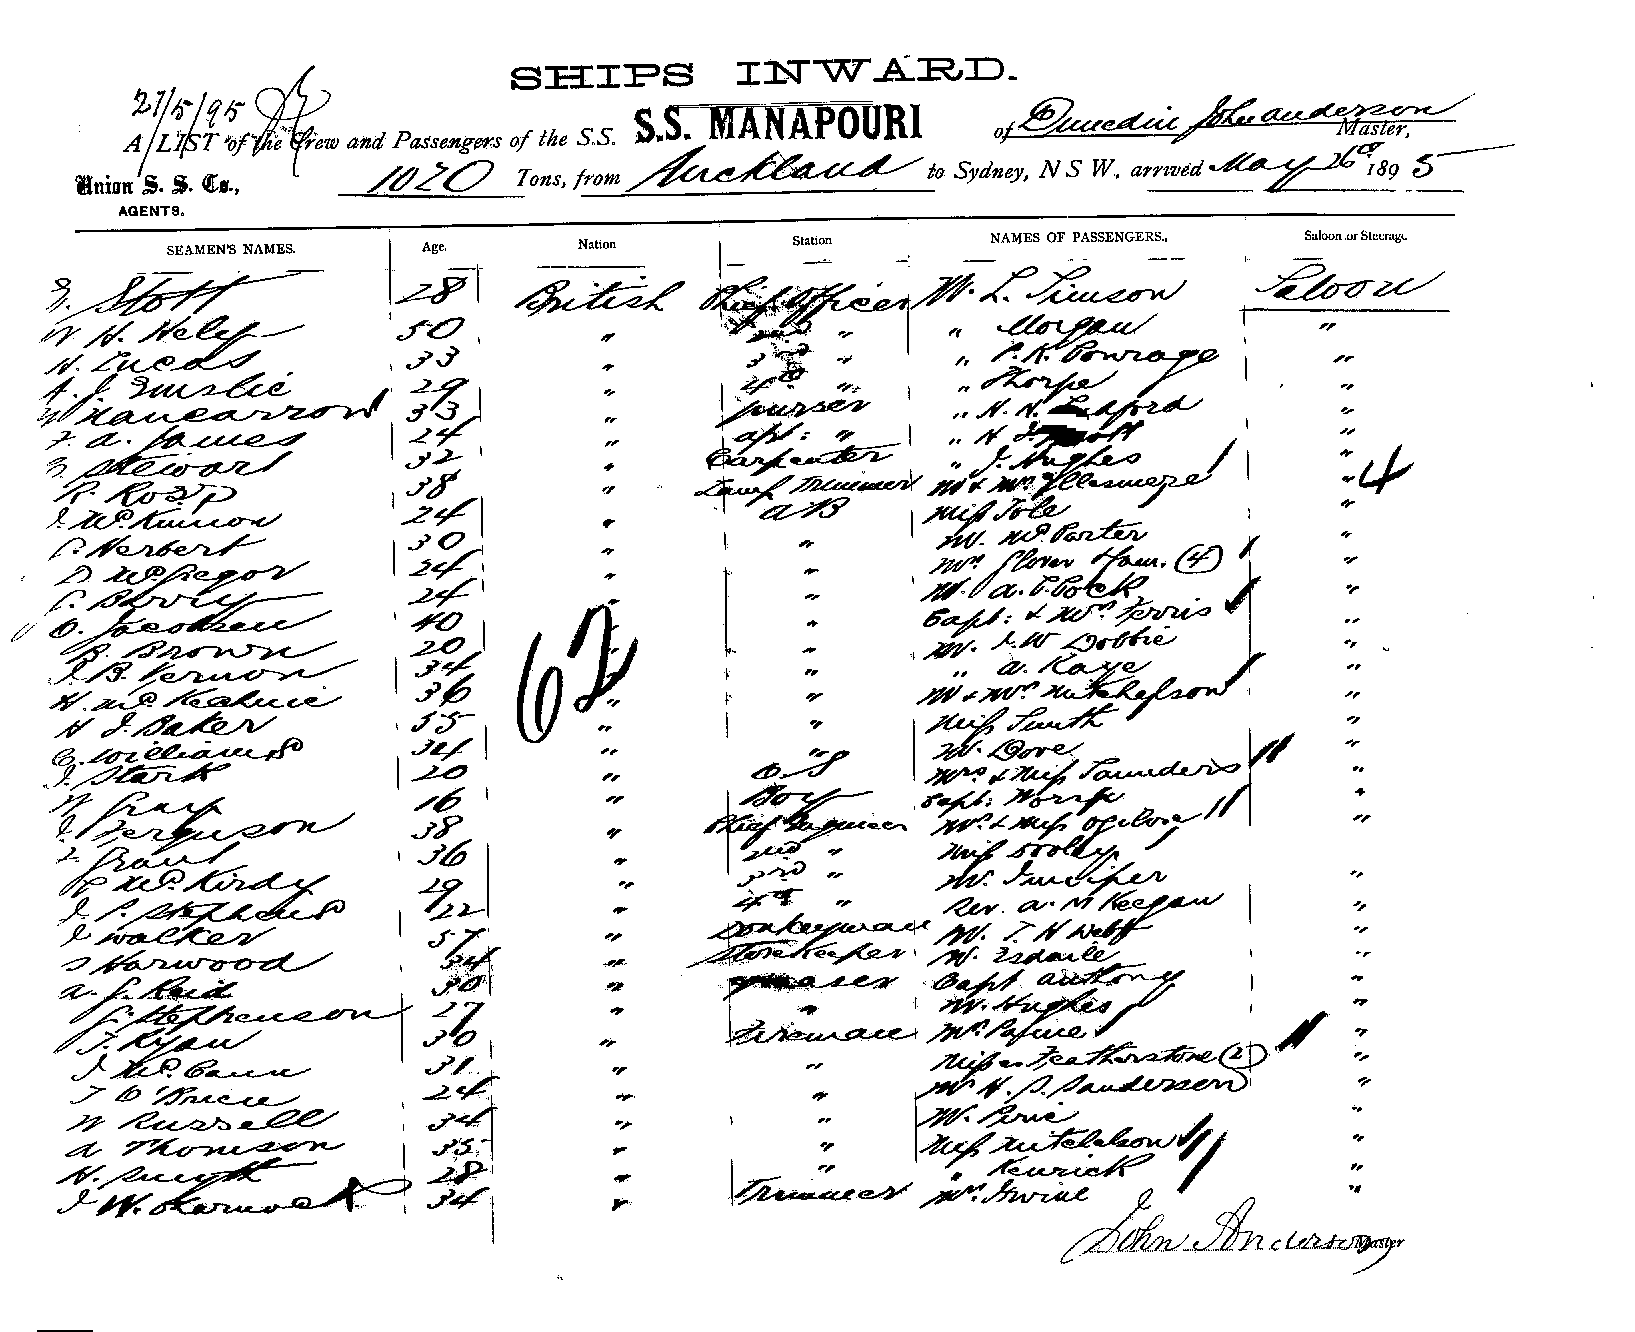 SHIPS INWARD.
27/5/95
A LIST of the Crew and Passengers of the S.S. S.S. MANAPOURI of Dunedin John Anderson Master,
Union S. S. Co., 1020 Tons, from Auckland to Sydney, N S W, arrived May 26th 1895
AGENTS.
SEAMEN'S NAMES. Age. Nation Station NAMES OF PASSENGERS. Saloon or Steerage
Stott 28 British Chief Officer Mr. L. Simson Saloon
W H. Hely 50 " 2nd " " Morgan "
H. Lucas 33 " 3rd " " P. K. "
A. J. Emslie 29 " 4th " " Thorpe "
Nancarrow 33 " purser " H. H. "
a. James 24 " " " H "
Stewart 32 " Carpenter " J. Hughes "
R. 38 " Lamp Trimmer Mr & Mrs Ellesmere " 4
J. McKinnon 24 " AB Miss Tole "
Herbert 30 " " Mr. McPorter "
D McGregor 24 " " Mrs Glover Fam. (4) "
Berry 24 " " Mr. A. Cock "
O. Jacobsen 40 " " Capt: & Mrs Ferris "
B. Brown 20 " " Mr. J. W Dobbie "
J. B. Vernon 34 " " " A. Kaye "
H. McKechnie 36 62 " " Mr & Mrs Mitchelson "
H J. Baker 55 " " Miss Smith "
Williams 34 " " Mr. Dove "
J. Stark 20 " O S Mrs & Miss Saunders "
W Gray 16 " Boy Capt: Worsp "
J. Ferguson 38 " Chief Engineer Mrs & Miss Ogilvie "
Grant 36 " 2nd " Miss
McKirdy 29 " 3rd " Mr. "
J. P. Stephens 22 " 4th " Rev. A. M Keegan "
J Walker 57 " Donkeyman Mr. T. H Webb "
Harwood 34 " Storekeeper Mr. Esdaile "
A. G. Reid 30 " greaser Capt Anthony "
Stephenson 27 " " Mr. Hughes "
T. Ryan 30 " Fireman Mrs Payne "
J McCann 31 " " Misses Featherstone (2) "
T O'Brien 24 " " Mr H. S. Sanderson "
W Russell 34 " " Mr. Pirie "
A Thomson 35 " " Miss Mitchelson "
H. Smyth 28 " " " Kenrick "
J W. 34 " Trimmer Mrs Irvine "
John Anderson Master